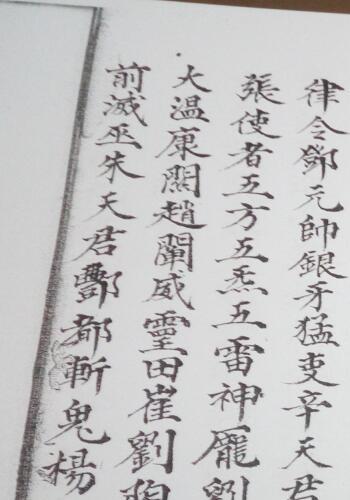 律令鄧元帥銀牙猛吏辛天君
張使者五方五炁五雷神龐劉
大温康關趙闡威靈田崔劉
前滅巫朱天君酆都斬鬼楊